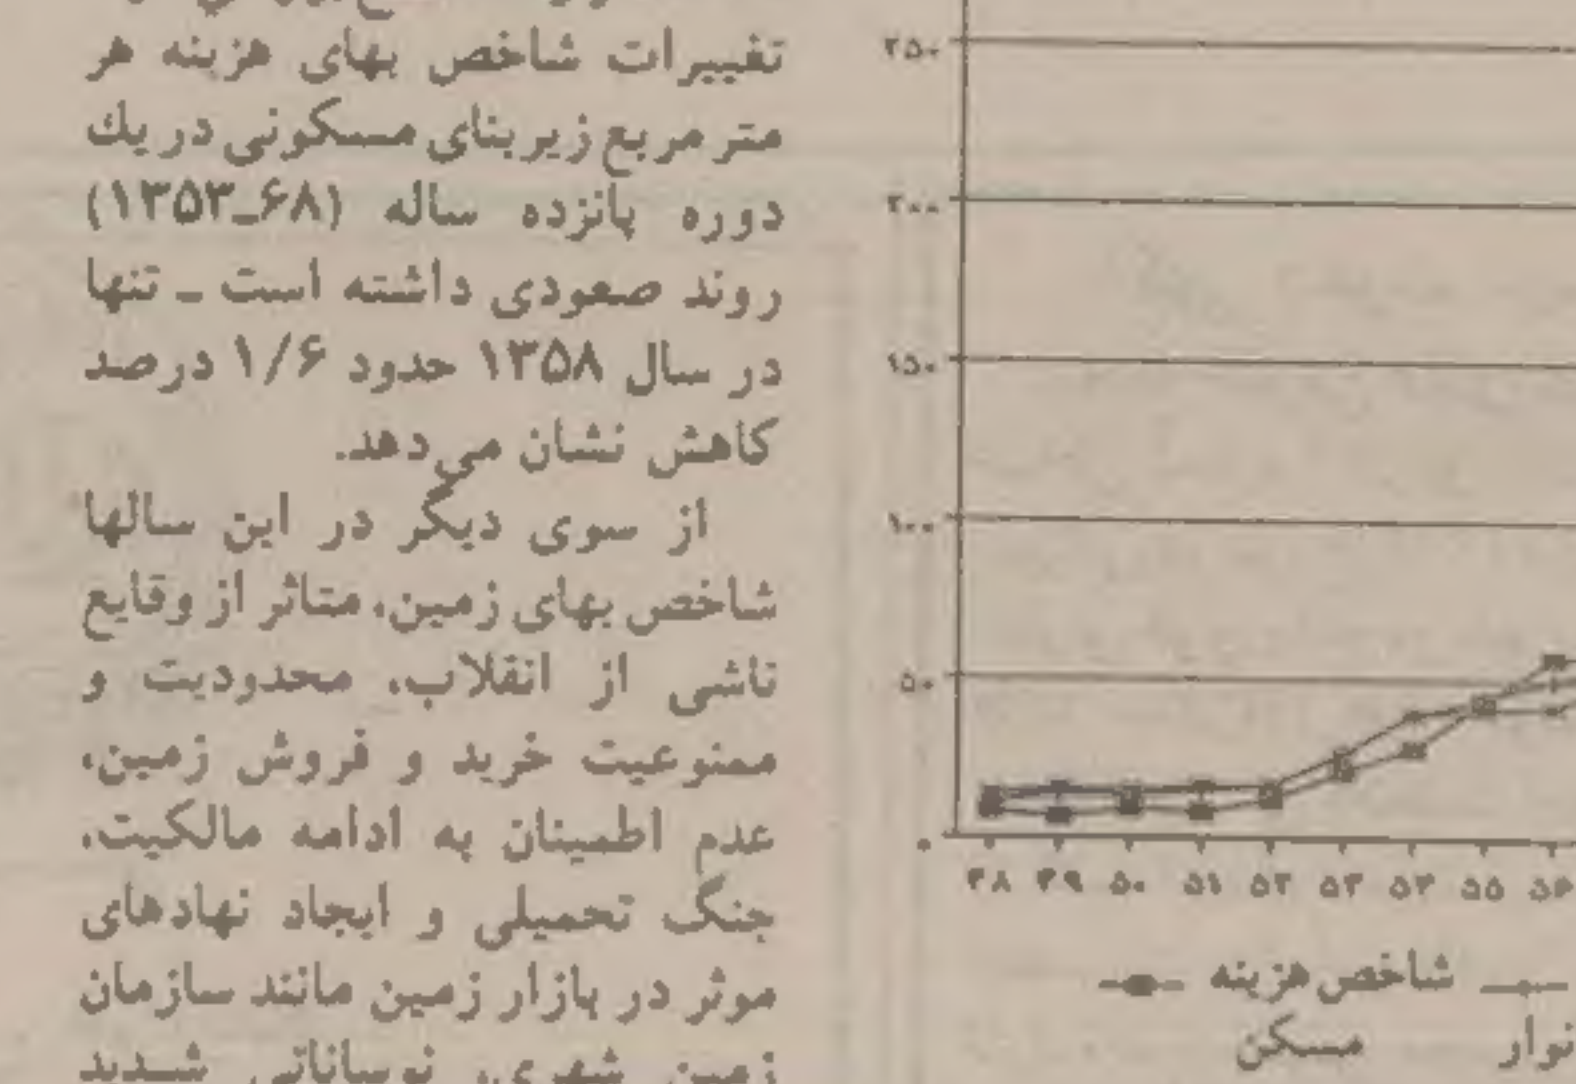 تغییرات شاخص بهای هزینه هر
متر مربع زیربنای مسکونی در یك
دوره پانزده ساله (۶۸ـ۱۳۵۳)
روند صعودی داشته است ـ تنها
در سال ۱۳۵۸ حدود ۱/۶ درصد
کاهش نشان می‌دهد.
از سوی دیگر در این سالها
شاخص بهای زمین، متاثر از وقایع
ناشی از انقلاب، محدودیت و
ممنوعیت خرید و فروش زمین،
عدم اطمینان به ادامه مالکیت،
جنگ تحمیلی و ایجاد نهادهای
موثر در بازار زمین مانند سازمان
زمین شهری، نوساناتی شدید
۲۵۰
۲۰۰
۱۵۰
۱۰۰
۵۰
۰
۴۸ ۴۹ ۵۰ ۵۱ ۵۲ ۵۳ ۵۴ ۵۵ ۵۶
شاخص هزینه
مسکن